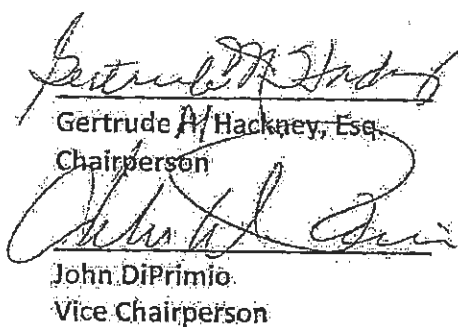 Gertrude
Gertrude A. Hackney, Esq.
Chairperson
John DiPrimio
Vice Chairperson